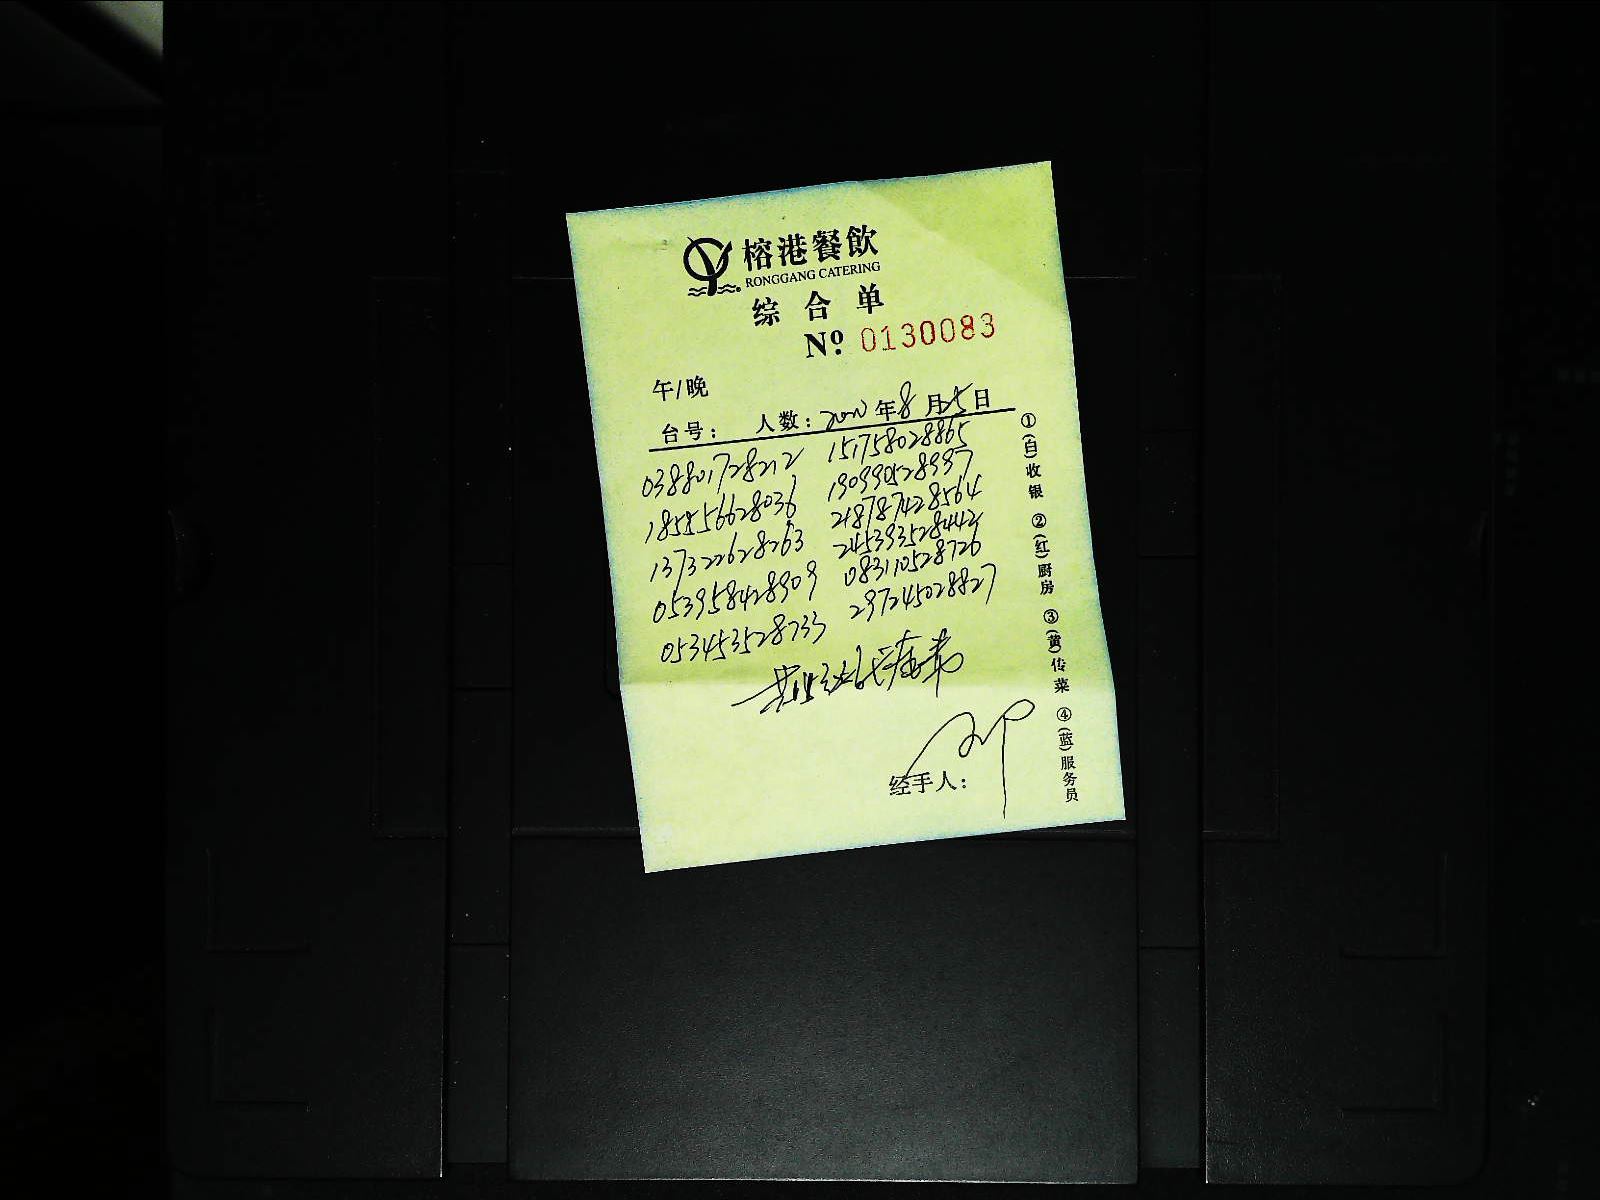 榕港餐飲
RONGGANG CATERING
综合单
Nº: 0130083
午/晚
台号: 人数: 年8月25日
038801728212 151758028865
185856628036 190990528997
137322628263 218787428564
053958428909 245393528442
053453528733 083110528726
297245028827
经手人:
①(白)收银 ②(红)厨房 ③(黄)传菜 ④(蓝)服务员